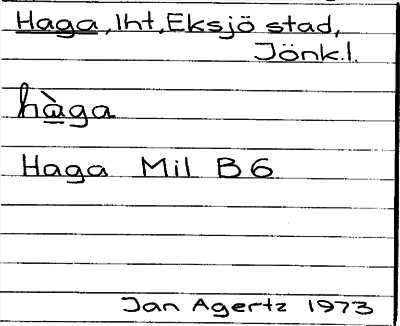 Haga, lht, Eksjö stad,
Jönk.l.
hàga
Haga Mil B6
Jan Agertz 1973